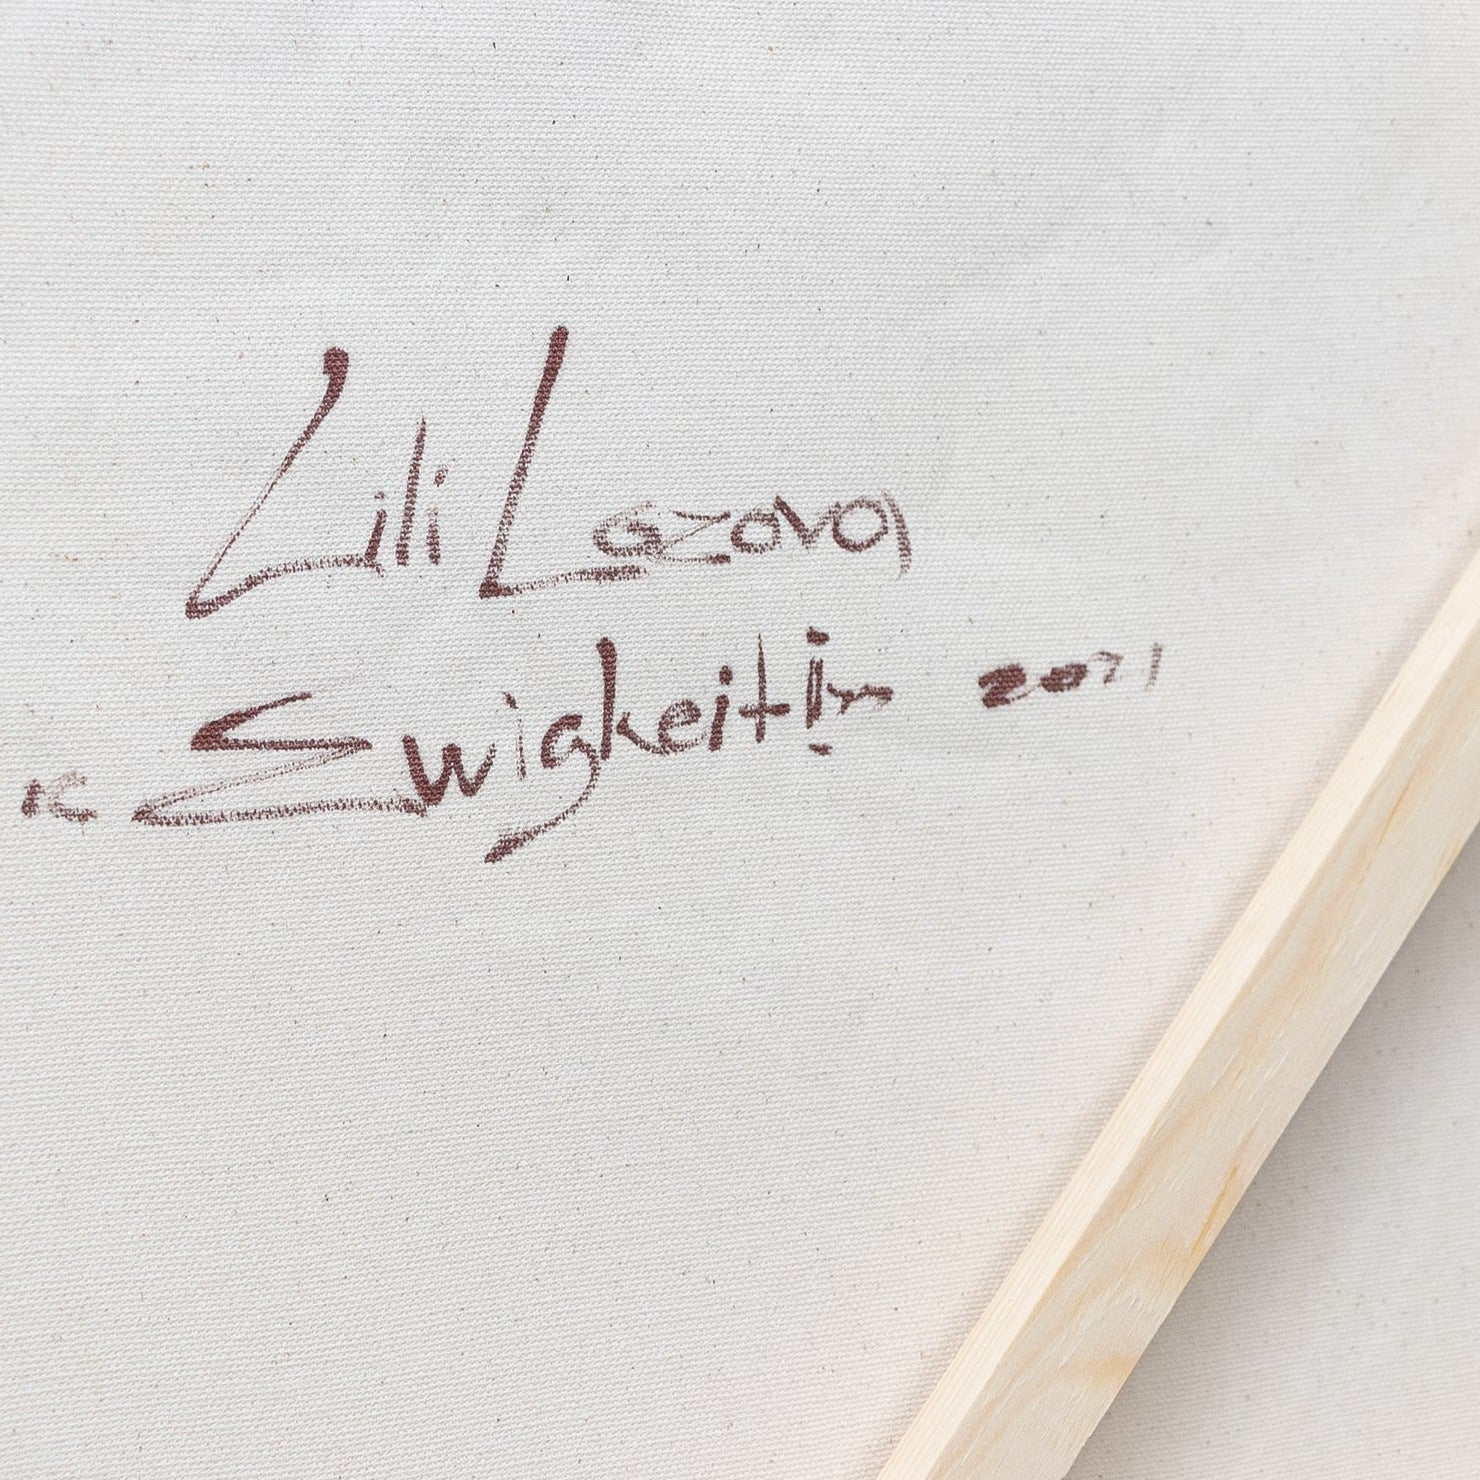 Lili Lazova
"Ewigkeit!" 2021